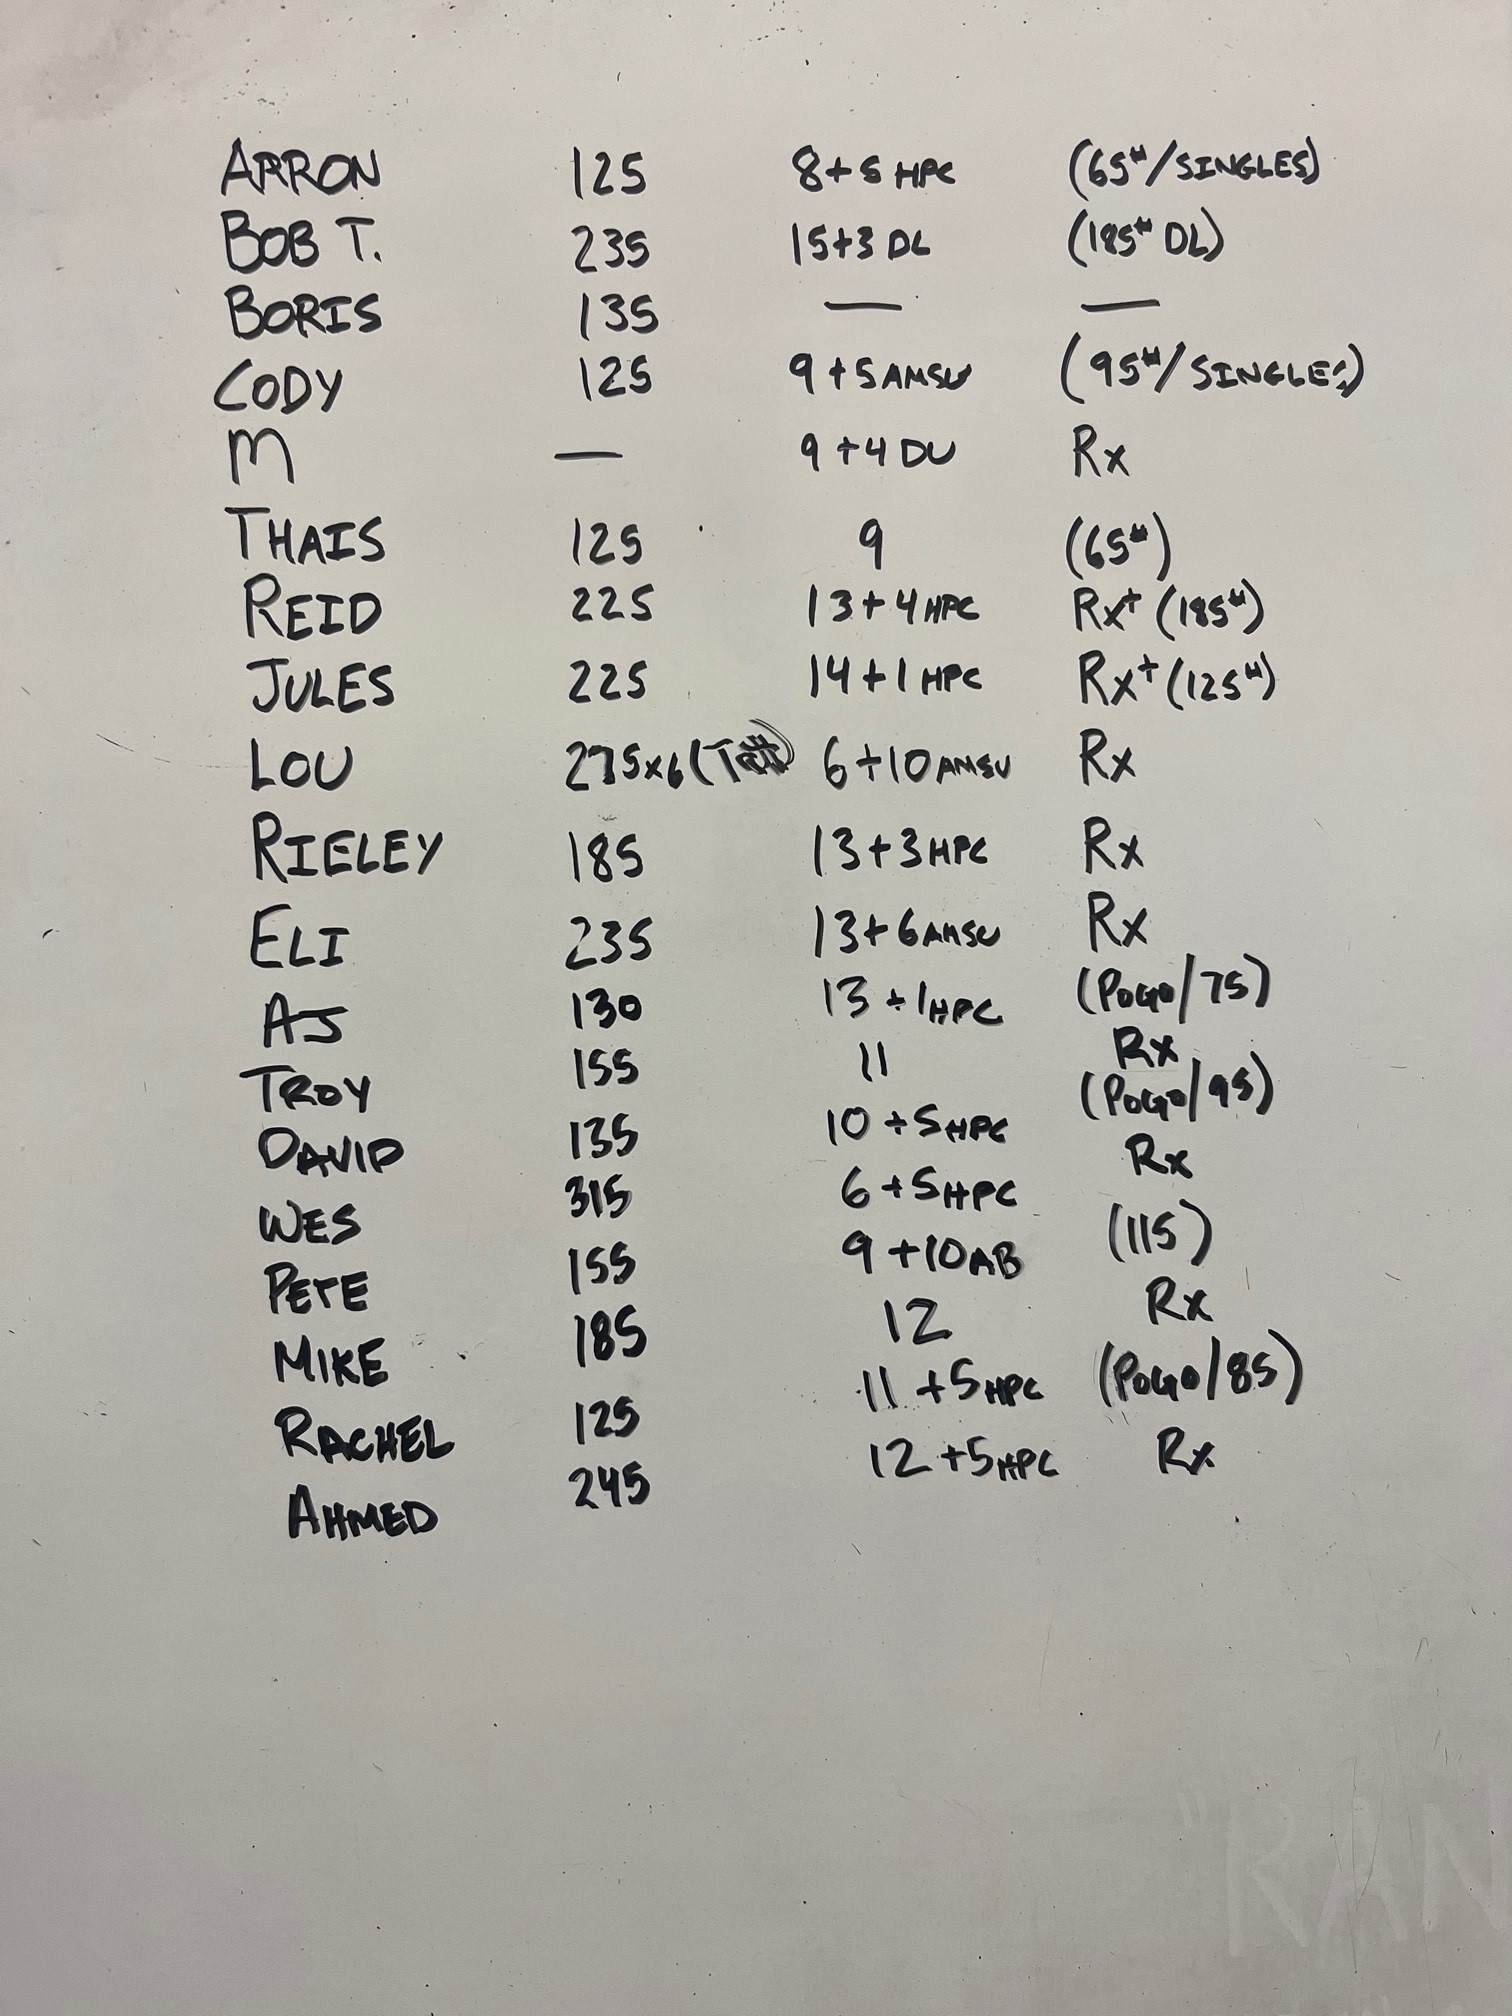 ARRON 125 8+5 HPC (65#/SINGLES)
BOB T. 235 15+3 DL (185# DL)
BORIS 135 — —
CODY 125 9+5 AMSU (95#/SINGLES)
M — 9+4 DU Rx
THAIS 125 9 (65#)
REID 225 13+4 HPC Rx+ (185#)
JULES 225 14+1 HPC Rx+ (125#)
LOU 275x6 6+10 AMSU Rx
RIELEY 185 13+3 HPC Rx
ELI 235 13+6 AMSU Rx
AJ 130 13+1 HPC (POGO/75)
TROY 155 11 Rx
DAVID 135 10+5 HPC (POGO/95)
WES 315 6+5 HPC Rx
PETE 155 9+10 AB (115)
MIKE 185 12 Rx
RACHEL 125 11+5 HPC (POGO/85)
AHMED 245 12+5 HPC Rx
"RAN